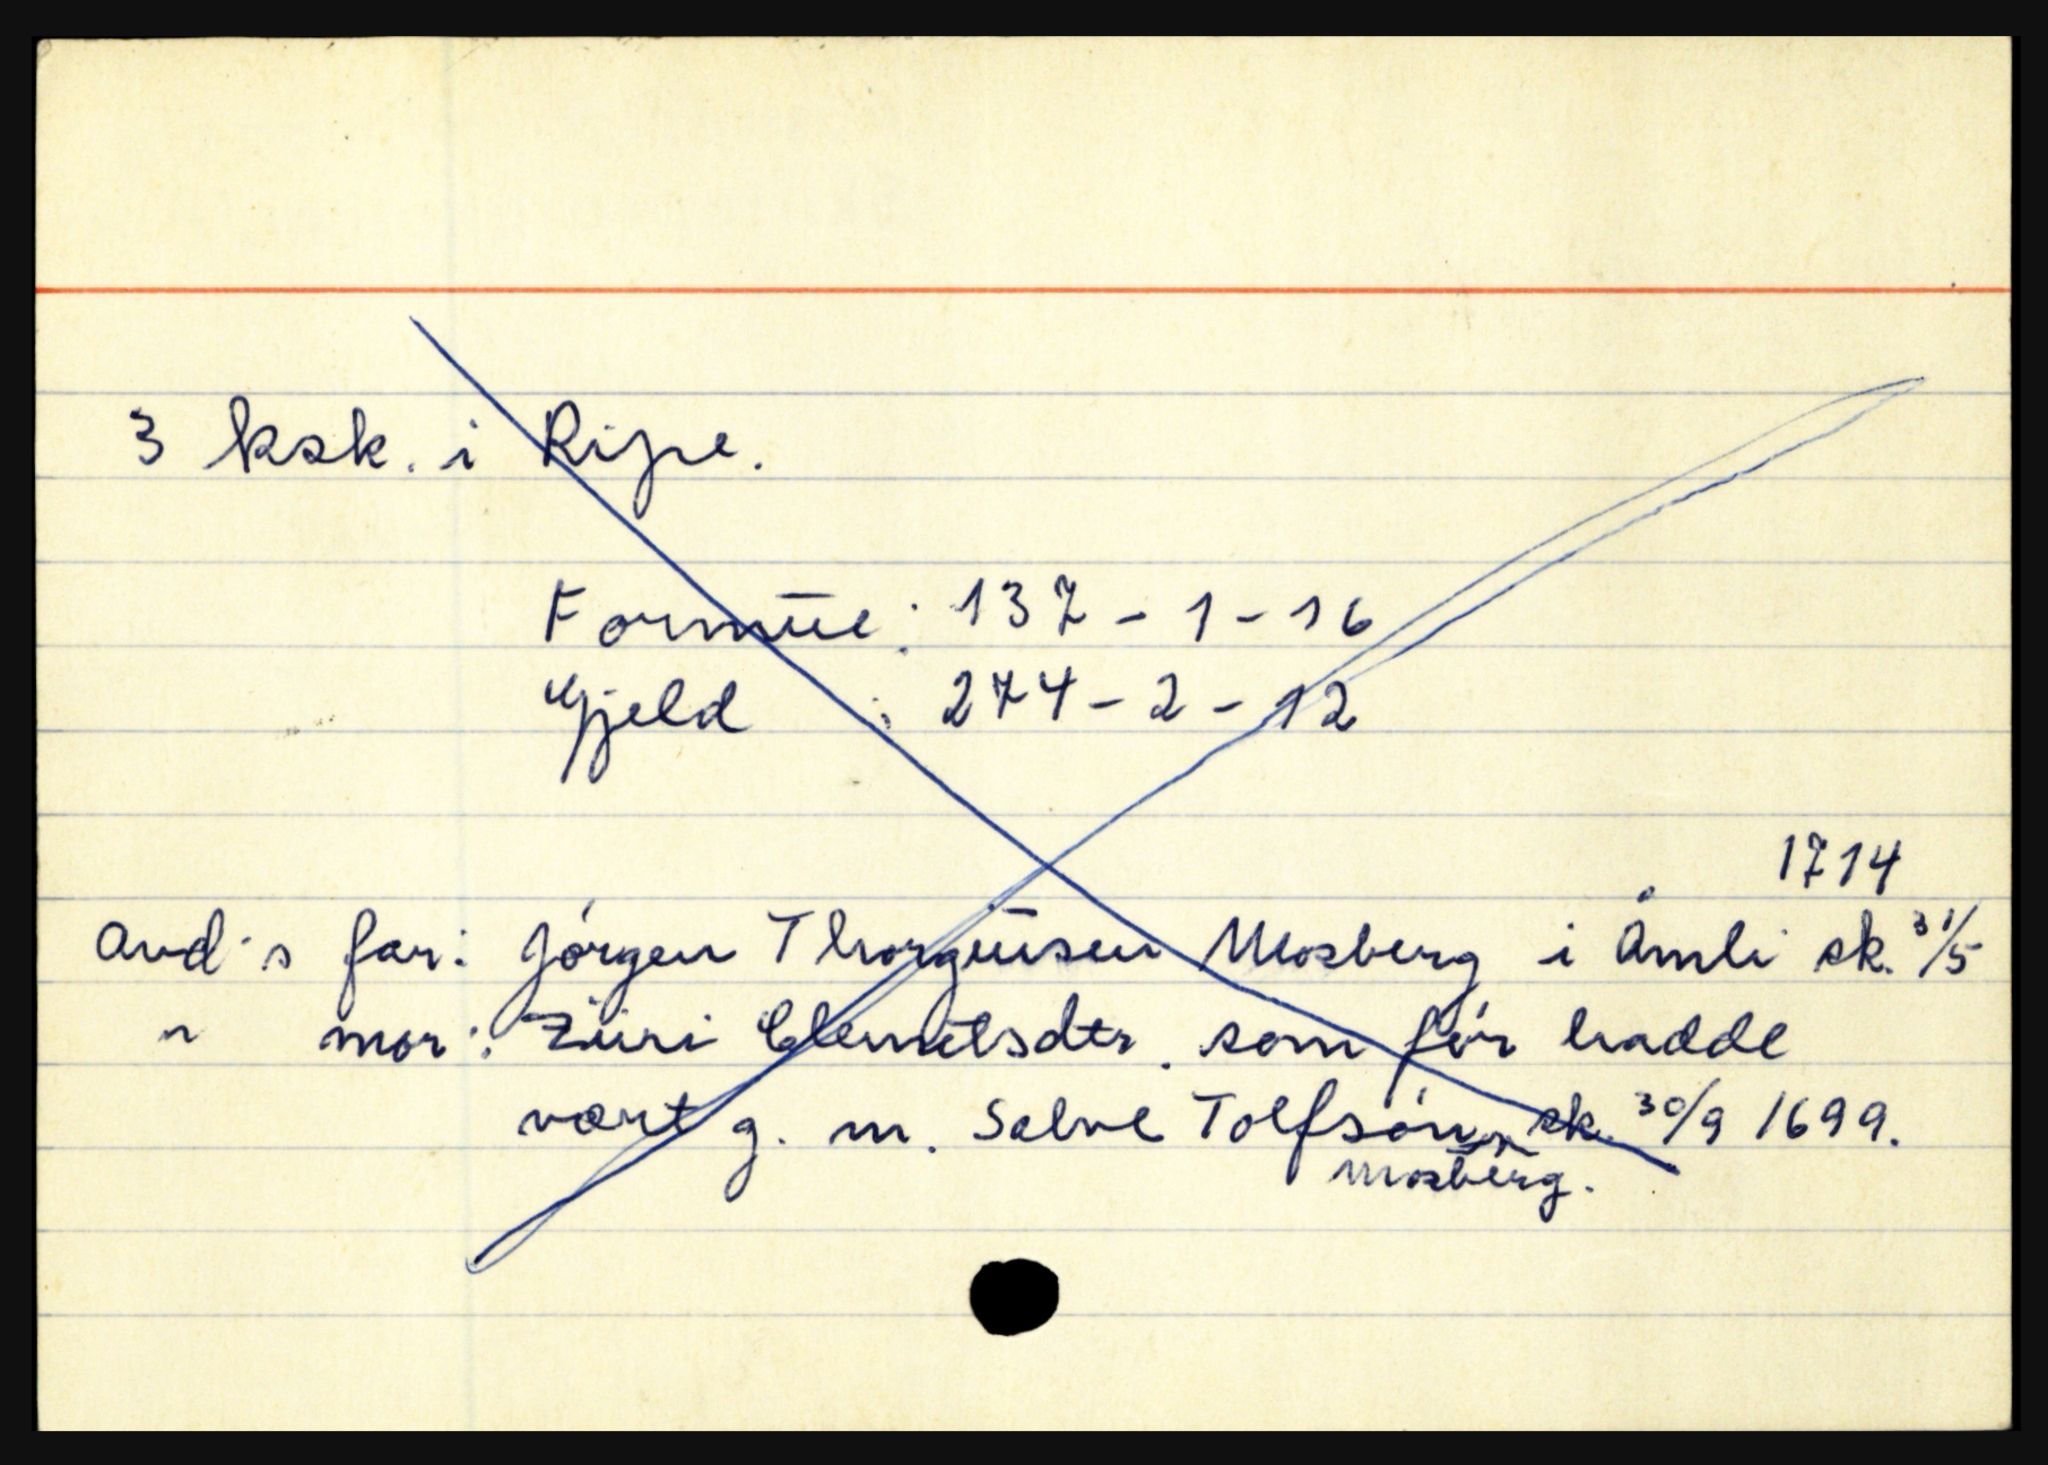 3 ksk. i Ripe.
Formue: 137 - 1 - 16
Gjeld : 274 - 2 - 12
1714
Avd's far: Jórgen Thorgusen Mosberg i Åmli sk. 31/5
" mor: Zuri Clemetsdtr. som fór hadde
vært g. m. Salve Tolfsón sk. 30/9 1699.
Mosberg.